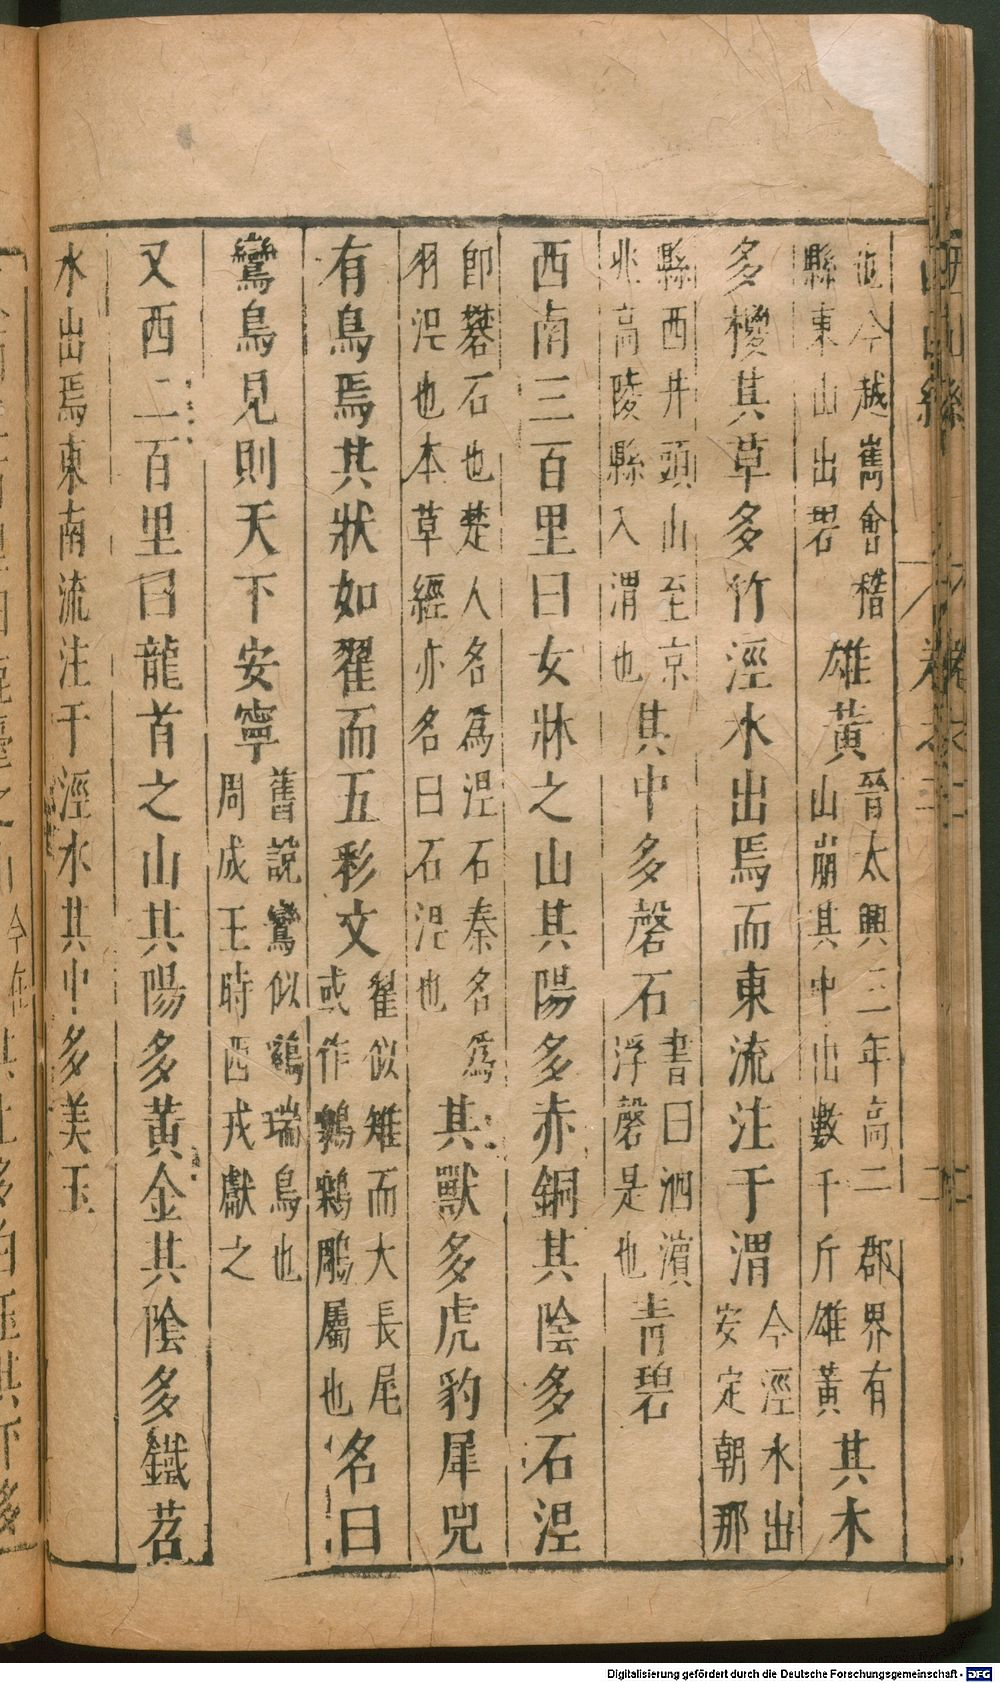 也今越嶲會稽
縣東山出碧
雄黃
晉太興三年高二郡界有
山崩其中出數千斤雄黃
其木
多椶其草多竹涇水出焉而東流注于渭
今涇水出
安定朝那
縣西井頭山至京
兆高陵縣入渭也
其中多磬石
書曰泗濱
浮磬是也
青碧
西南三百里曰女牀之山其陽多赤銅其陰多石涅
即礬石也楚人名爲涅石秦名爲
羽涅也本草經亦名曰石涅也
其獸多虎豹犀兕
有鳥焉其狀如翟而五彩文
翟似雉而大長尾
或作鷄鶏鵰屬也
名曰
鸞鳥見則天下安寧
舊說鸞似鷄瑞鳥也
周成王時西戎獻之
又西二百里曰龍首之山其陽多黃金其陰多鐵苕
水出焉東南流注于涇水其中多美玉
Digitalisierung gefördert durch die Deutsche Forschungsgemeinschaft - DFG